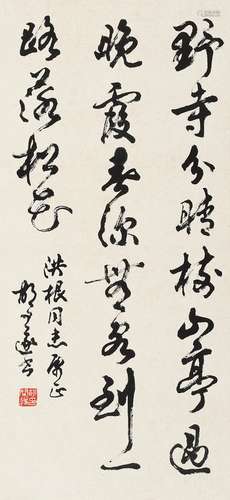 野寺分晴樹山亭過
晚霞春深無客到一
路落松花
洪根同志属正
胡问遂书